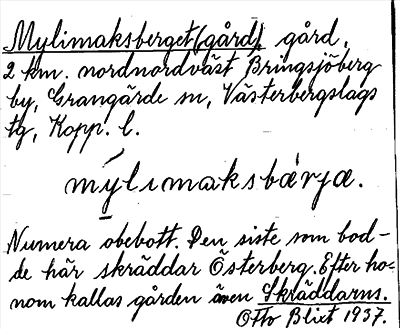 Mylimaksberget (gård), gård,
2 km. nordnordväst Bringsjöberg
by, Grangärde sn, Västerbergslags
tg, Kopp. l.
mýlımaksbǽrja.
Numera obebott. Den siste som bod-
de här skräddar Österberg. Efter ho-
nom kallas gården även Skräddarns.
Otto Blixt 1937.